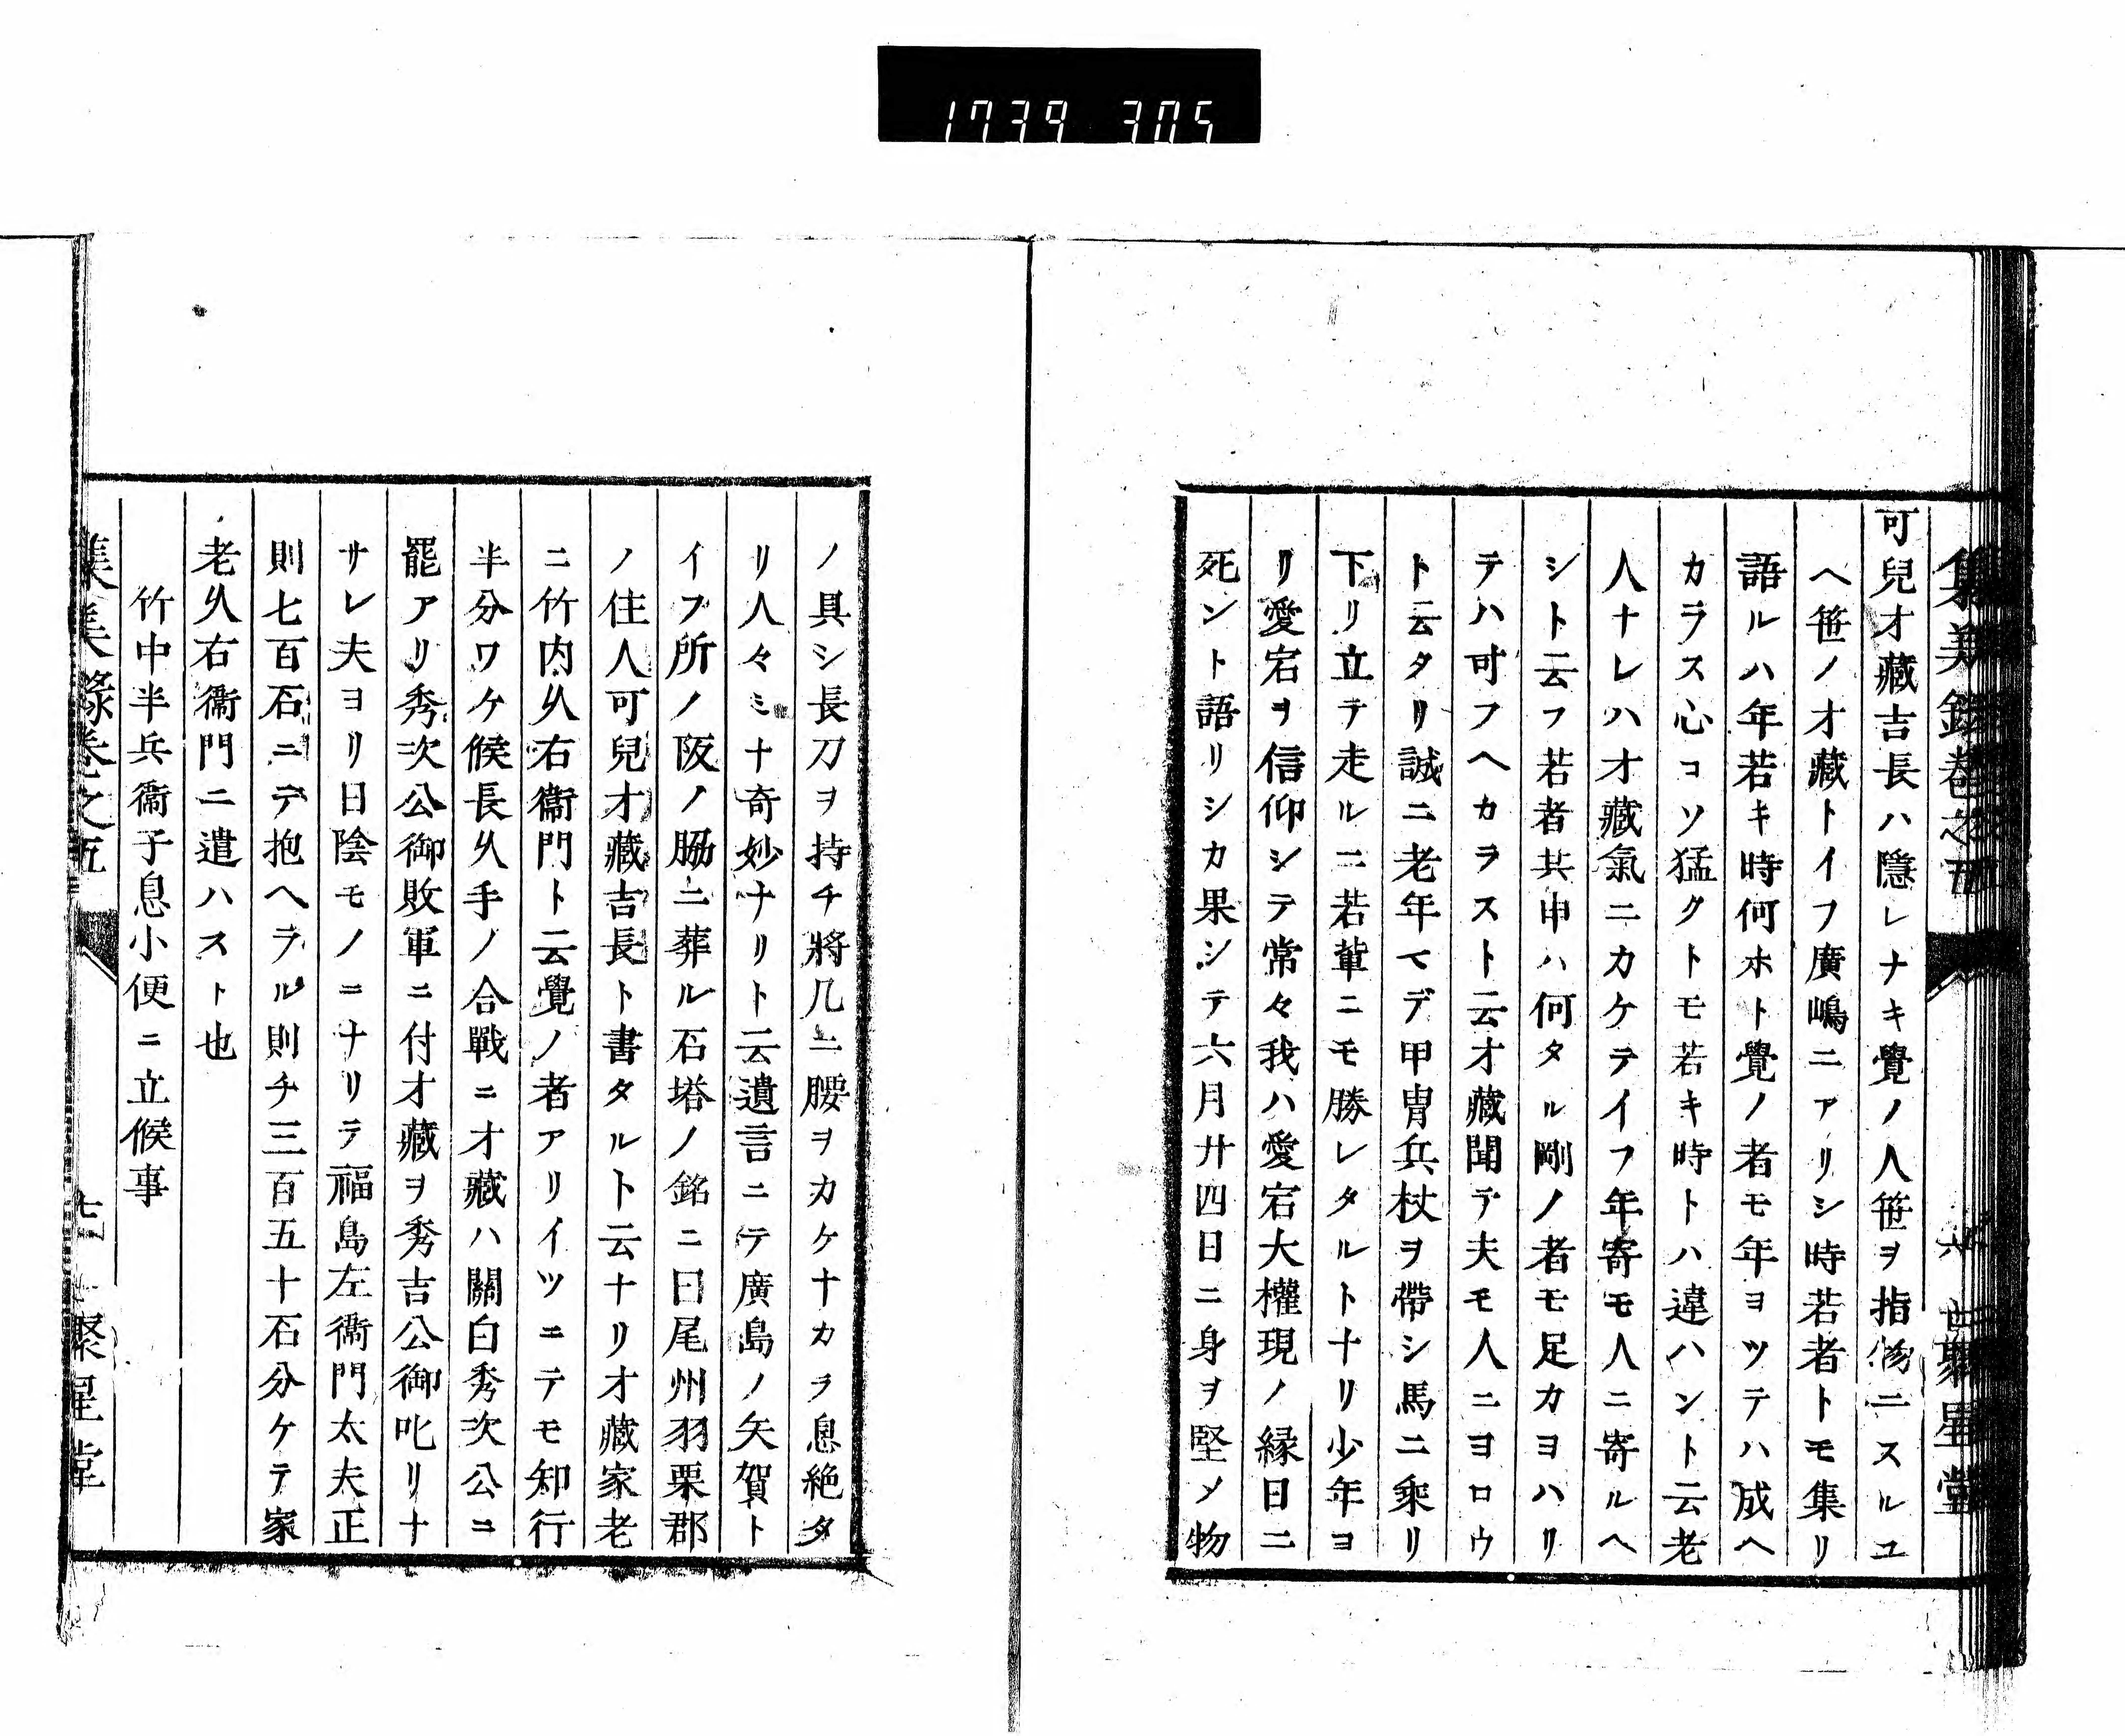 1739 305
集美錄卷之五
六
聚星堂
可兒才藏吉長ハ隱レナキ覺ノ人笹ヲ指物ニスルユ
ヘ笹ノ才藏トイフ廣嶋ニアリシ時若者トモ集リ
語ルハ年若キ時何ホト覺ノ者モ年ヨツテハ成ヘ
カラス心コソ猛クトモ若キ時トハ違ハント云老
人ナレハ才藏氣ニカケテイフ年寄モ人ニ寄ルヘ
シト云フ若者共申ハ何タル剛ノ者モ足カヨハリ
テハ可フヘカラスト云才藏聞テ夫モ人ニヨロウ
ト云タリ誠ニ老年マデ甲冑兵杖ヲ帶シ馬ニ乘リ
下リ立テ走ルニ若輩ニモ勝レタルト十リ少年ヨ
リ愛宕ヲ信仰シテ常々我ハ愛宕大權現ノ縁日ニ
死ント語リシカ果シテ六月廾四日ニ身ヲ堅メ物
ノ具シ長刀ヲ持チ將几ニ腰ヲカケナカラ息絶タ
リ人々ミナ奇妙ナリト云遺言ニテ廣島ノ矢賀ト
イフ所ノ阪ノ脇ニ葬ル石塔ノ銘ニ曰尾州羽栗郡
ノ住人可兒才藏吉長ト書タルト云ナリ才藏家老
ニ竹内久右衞門ト云覺ノ者アリイツニテモ知行
半分ワケ候長久手ノ合戰ニ才藏ハ關白秀次公ニ
罷アリ秀次公御敗軍ニ付才藏ヲ秀吉公御叱リナ
サレ夫ヨリ日陰モノニナリテ福島左衞門太夫正
則七百石ニテ抱ヘラル則チ三百五十石分ケテ家
老久右衞門ニ遣ハスト也
竹中半兵衞子息小便ニ立候事
集美錄卷之五
七
聚星堂